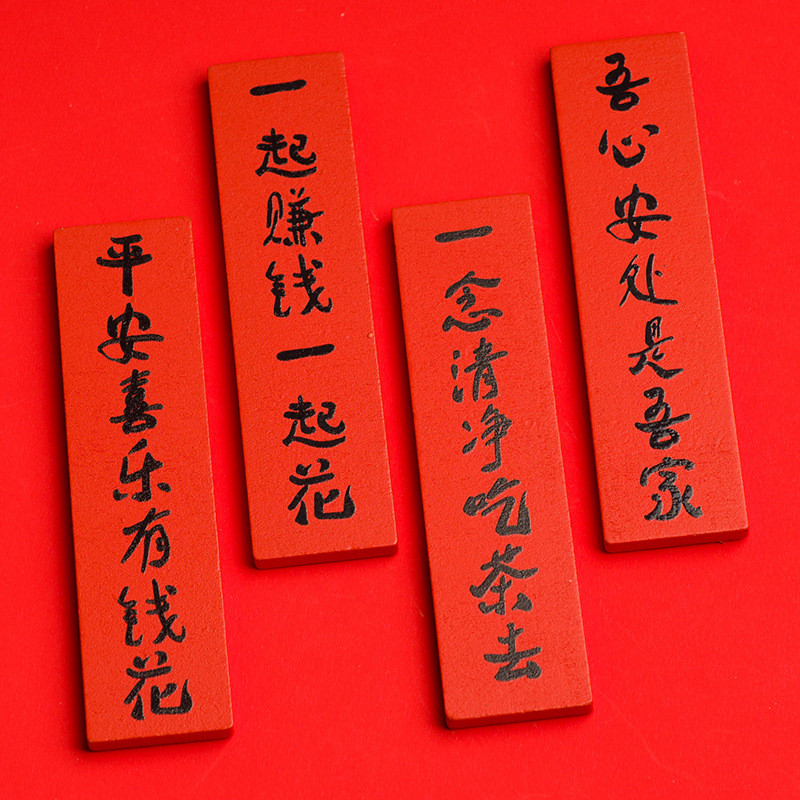 平安喜乐有钱花
一起赚钱一起花
一念清净吃茶去
吾心安处是吾家